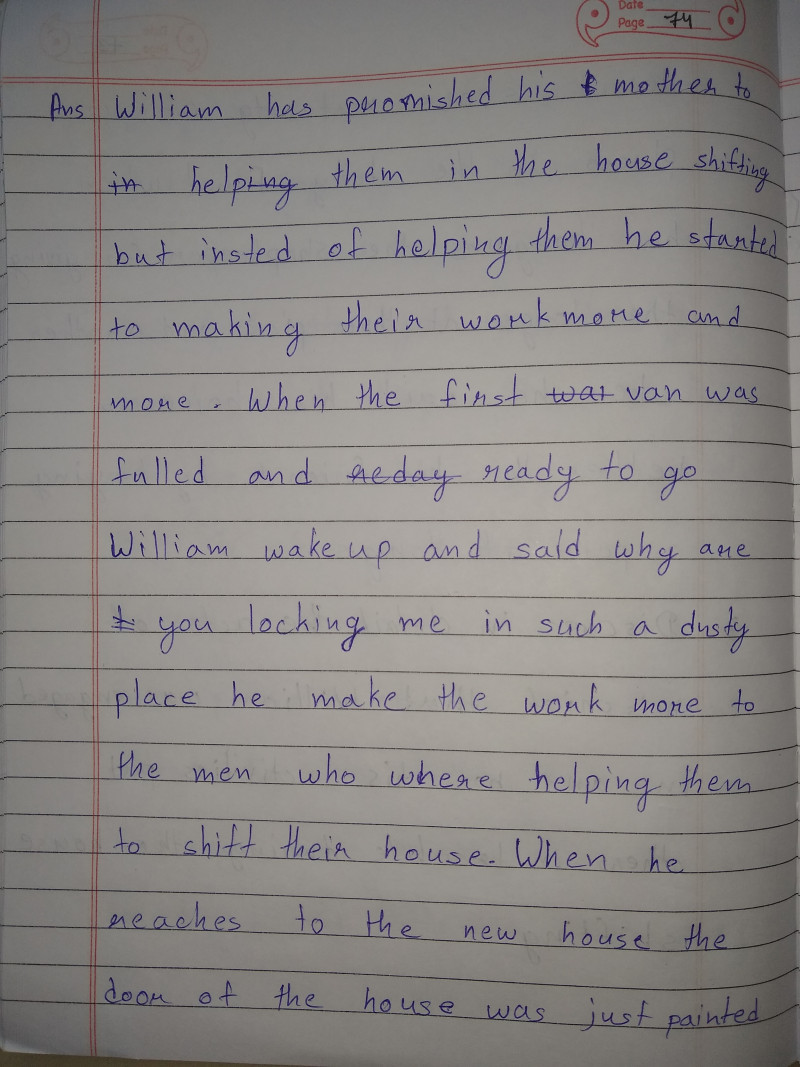 Date
Page 74
Ans William has promished his mother to
in helping them in the house shifting
but insted of helping them he started
to making their work more and
more. When the first wat van was
fulled and reday ready to go
William wake up and said why are
you locking me in such a dusty
place he make the work more to
the men who where helping them
to shift their house. When he
reaches to the new house the
door of the house was just painted